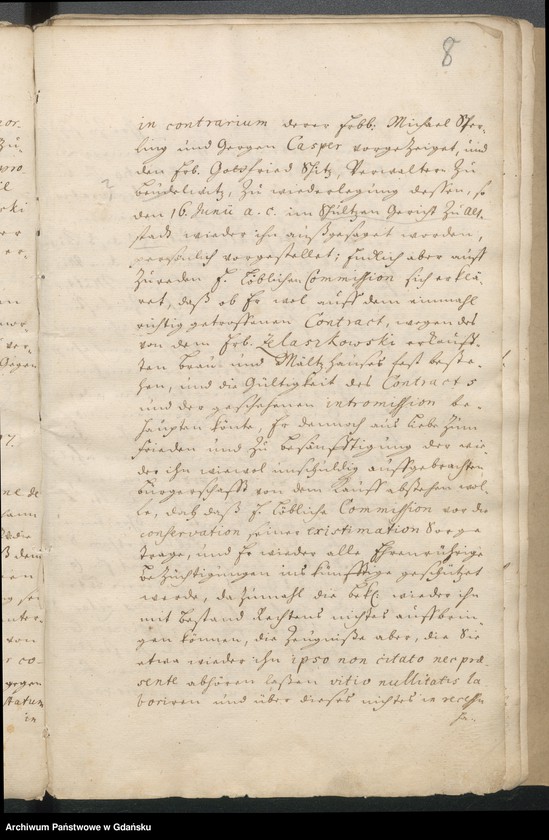 8
in contrarium derer Ehrb: Michael Sper-
ling und Gergen Casper vorgezeiget, und
den Ehrb. Gottfried Spitz, Verwaltern zu
zu wiederlegung dessen, so
den 16. Junii a. c. im Schultzen Gericht zu Alt-
stadt wieder ihn außgesaget worden,
persönlich vorgestellet; Endlich aber auff
zureden E. Löblichen Commission sich erklä-
ret, daß ob Er wol auff dem einmahl
richtig getroffenen Contract, wegen des
von dem Ehrb. Zelaszkowski erkauff-
ten Brau- und Mältzhauses fest beste-
hen, und die Gültigkeit des Contracts
und der geschehenen intromission be-
haupten könte, Er dennoch aus liebe zum
Frieden und zu besänfftigung der wie-
der ihn wiewol unschuldig auffgebrachten
Bürgerschafft von dem Kauff abstehen wol-
le, daß E. Löbliche Commission vor die
conservation seiner existimation Sorge
trage, und Er wieder alle Ehrenrührige
Bezüchtigungen ins künfftige geschützet
werde, dazumahl die wieder ihn
mit bestand Rechtens nichtes auffbrin-
gen können, die Zeugniße aber, die Sie
etwa wieder ihn ipso non citato nec præ-
sente abhören laßen vitio nullitatis la
boriren und über dieses nichtes in recessu
ha-
or-
zu-
pro
ski
er-
ver-
gegen
17.
von
co-
gegen
statum
in
Archiwum Państwowe w Gdańsku